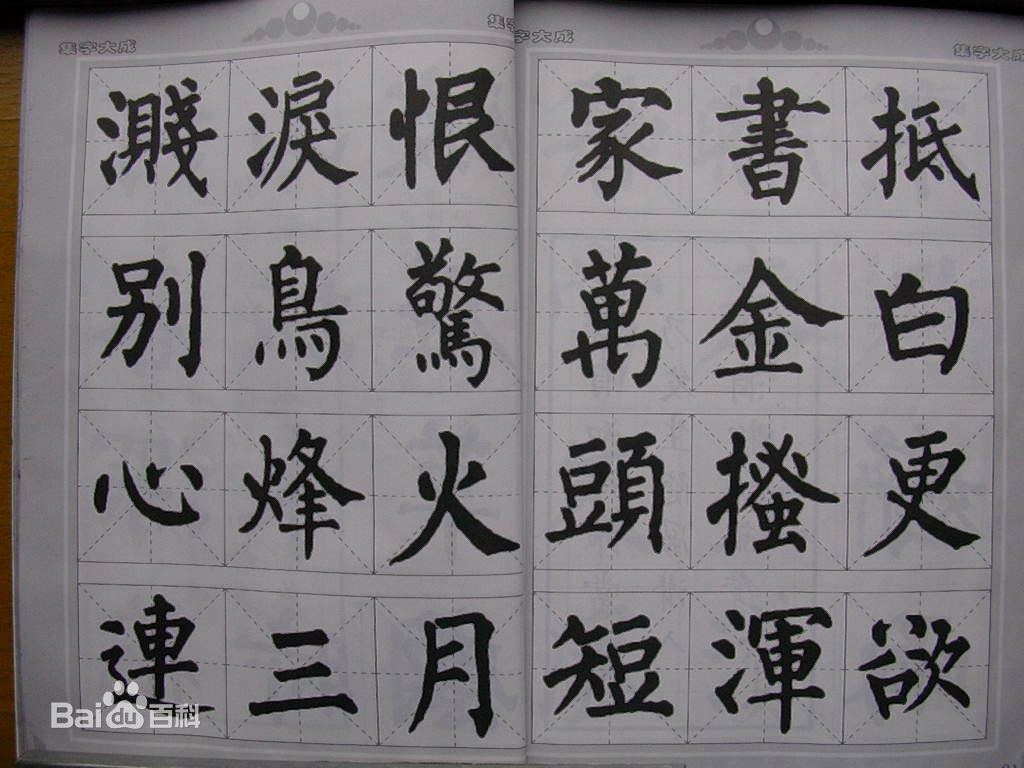 集字大成
集字大成
集字大成
濺淚恨
别鳥驚
心烽火
連三月
家書抵
萬金白
頭搔更
短渾欲
Bai du 百科